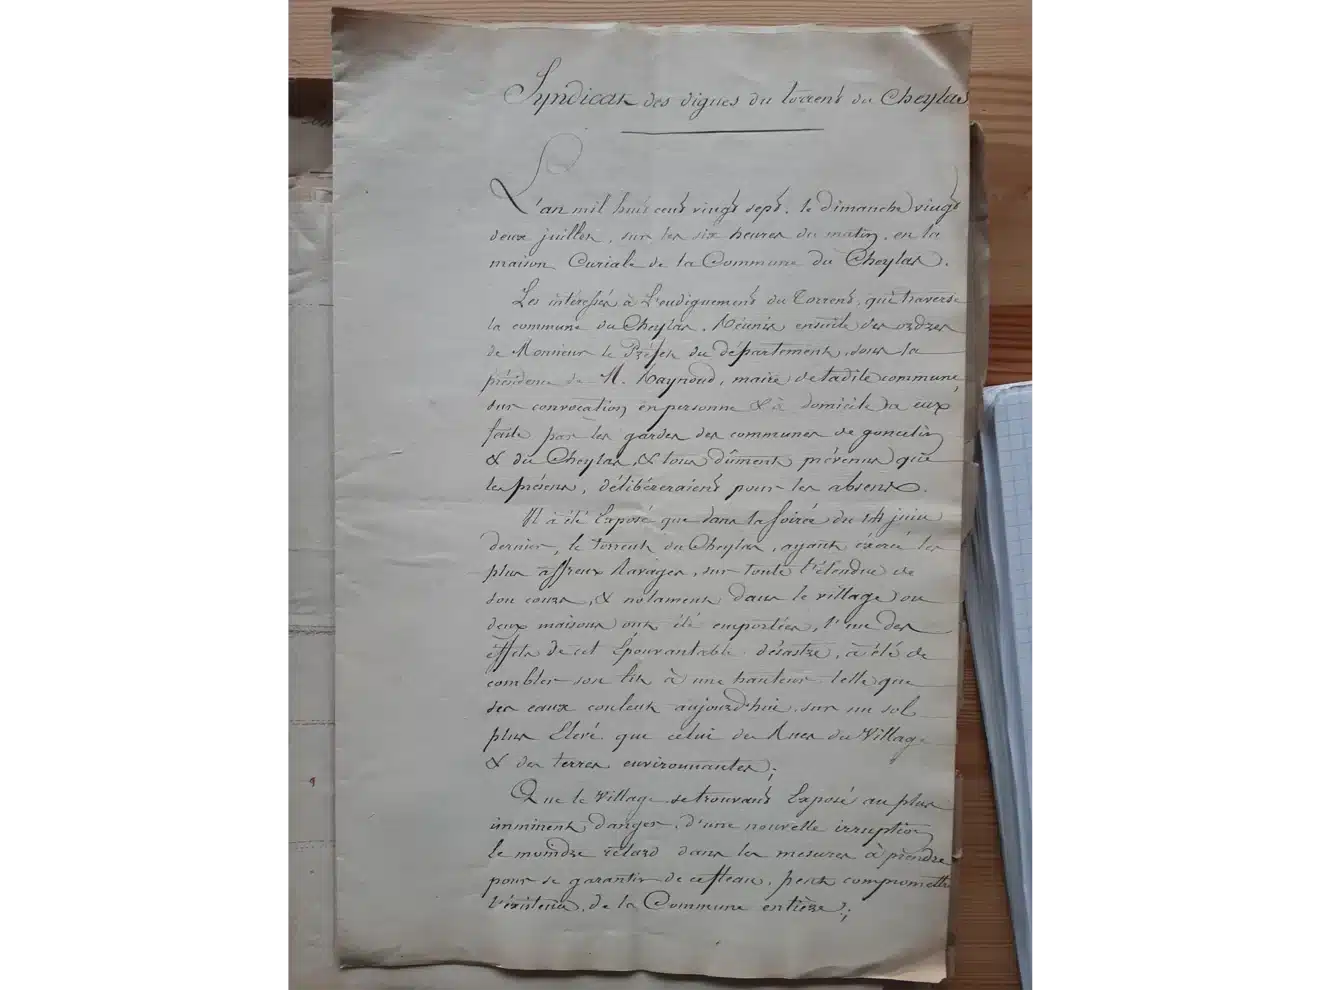 Syndicat des digues du torrent du Cheylas
L'an mil huit cent vingt sept, le dimanche vingt
deux juillet, sur les six heures du matin, en la
maison Curiale de la Commune du Cheylas.
Les intéressés à L'endiguement du Torrent, qui traverse
la commune du Cheylas, Réunis ensuite des ordres
de Monsieur le Préfet du département, sous la
présidence de M. Raynoud, maire de ladite commune,
sur convocation, en personne & à domicile a eux
faite par les gardes des communes de goncelin
& du Cheylas, & tous dûment prévenus que
les présens, délibéreraient pour les absens.
Il à été Exposé que dans la soirée du 14 juin
dernier, le torrent du Cheylas, ayant éxercé les
plus affreux Ravages, sur toute l'étendue de
son cours, & notament dans le village ou
deux maisons ont été emportées, l'un des
éffets de cet Épouvantable désastre, à été de
combler son lit à une hauteur telle que
ses eaux coulent aujourd'hui sur un sol
plus Elevé que celui des Rues du Village
& des terres environnantes;
Que le Village se trouvant Exposé au plus
imminent danger, d'une nouvelle irruption
le moindre retard dans les mesures à prendre
pour se garantir de ce fleau, peut compromettre
l'éxistence, de la Commune entière;